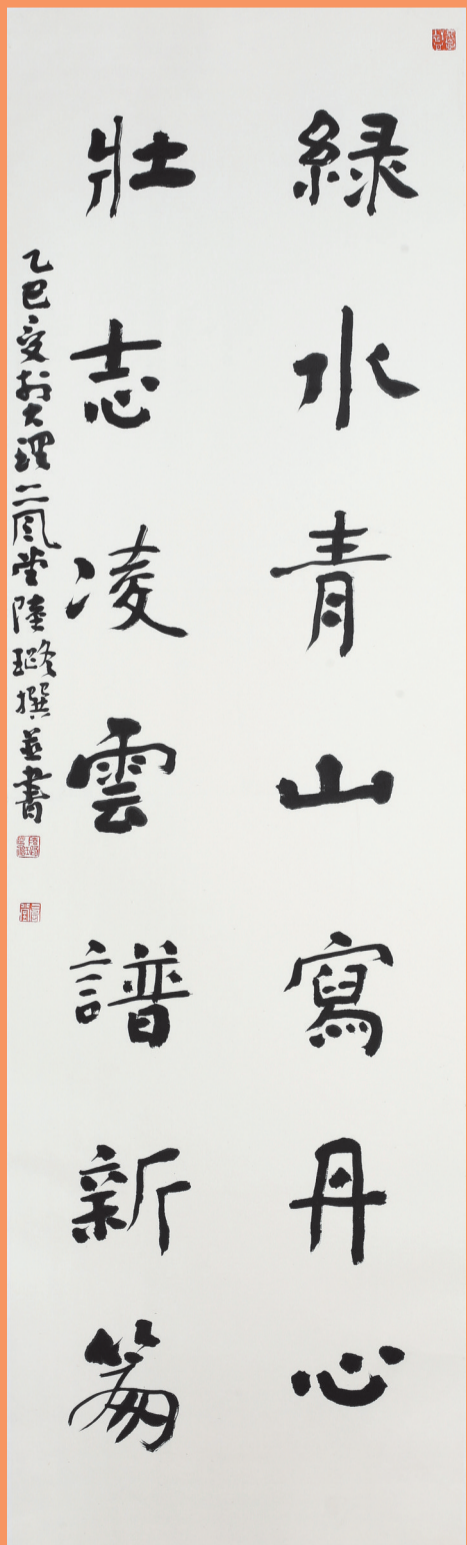 綠水青山寫丹心
壯志凌雲譜新篇
乙巳夏於大理二風堂陸璐撰並書